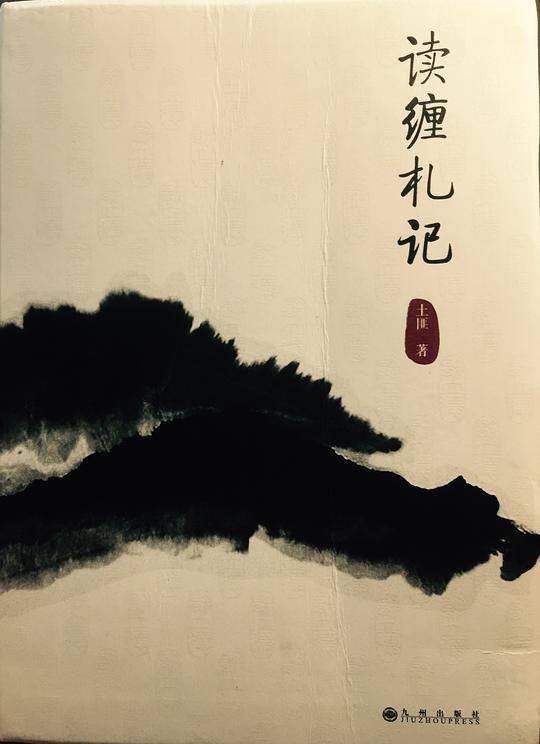 读缠札记
土匪 著
九州出版社
JIUZHOUPRESS